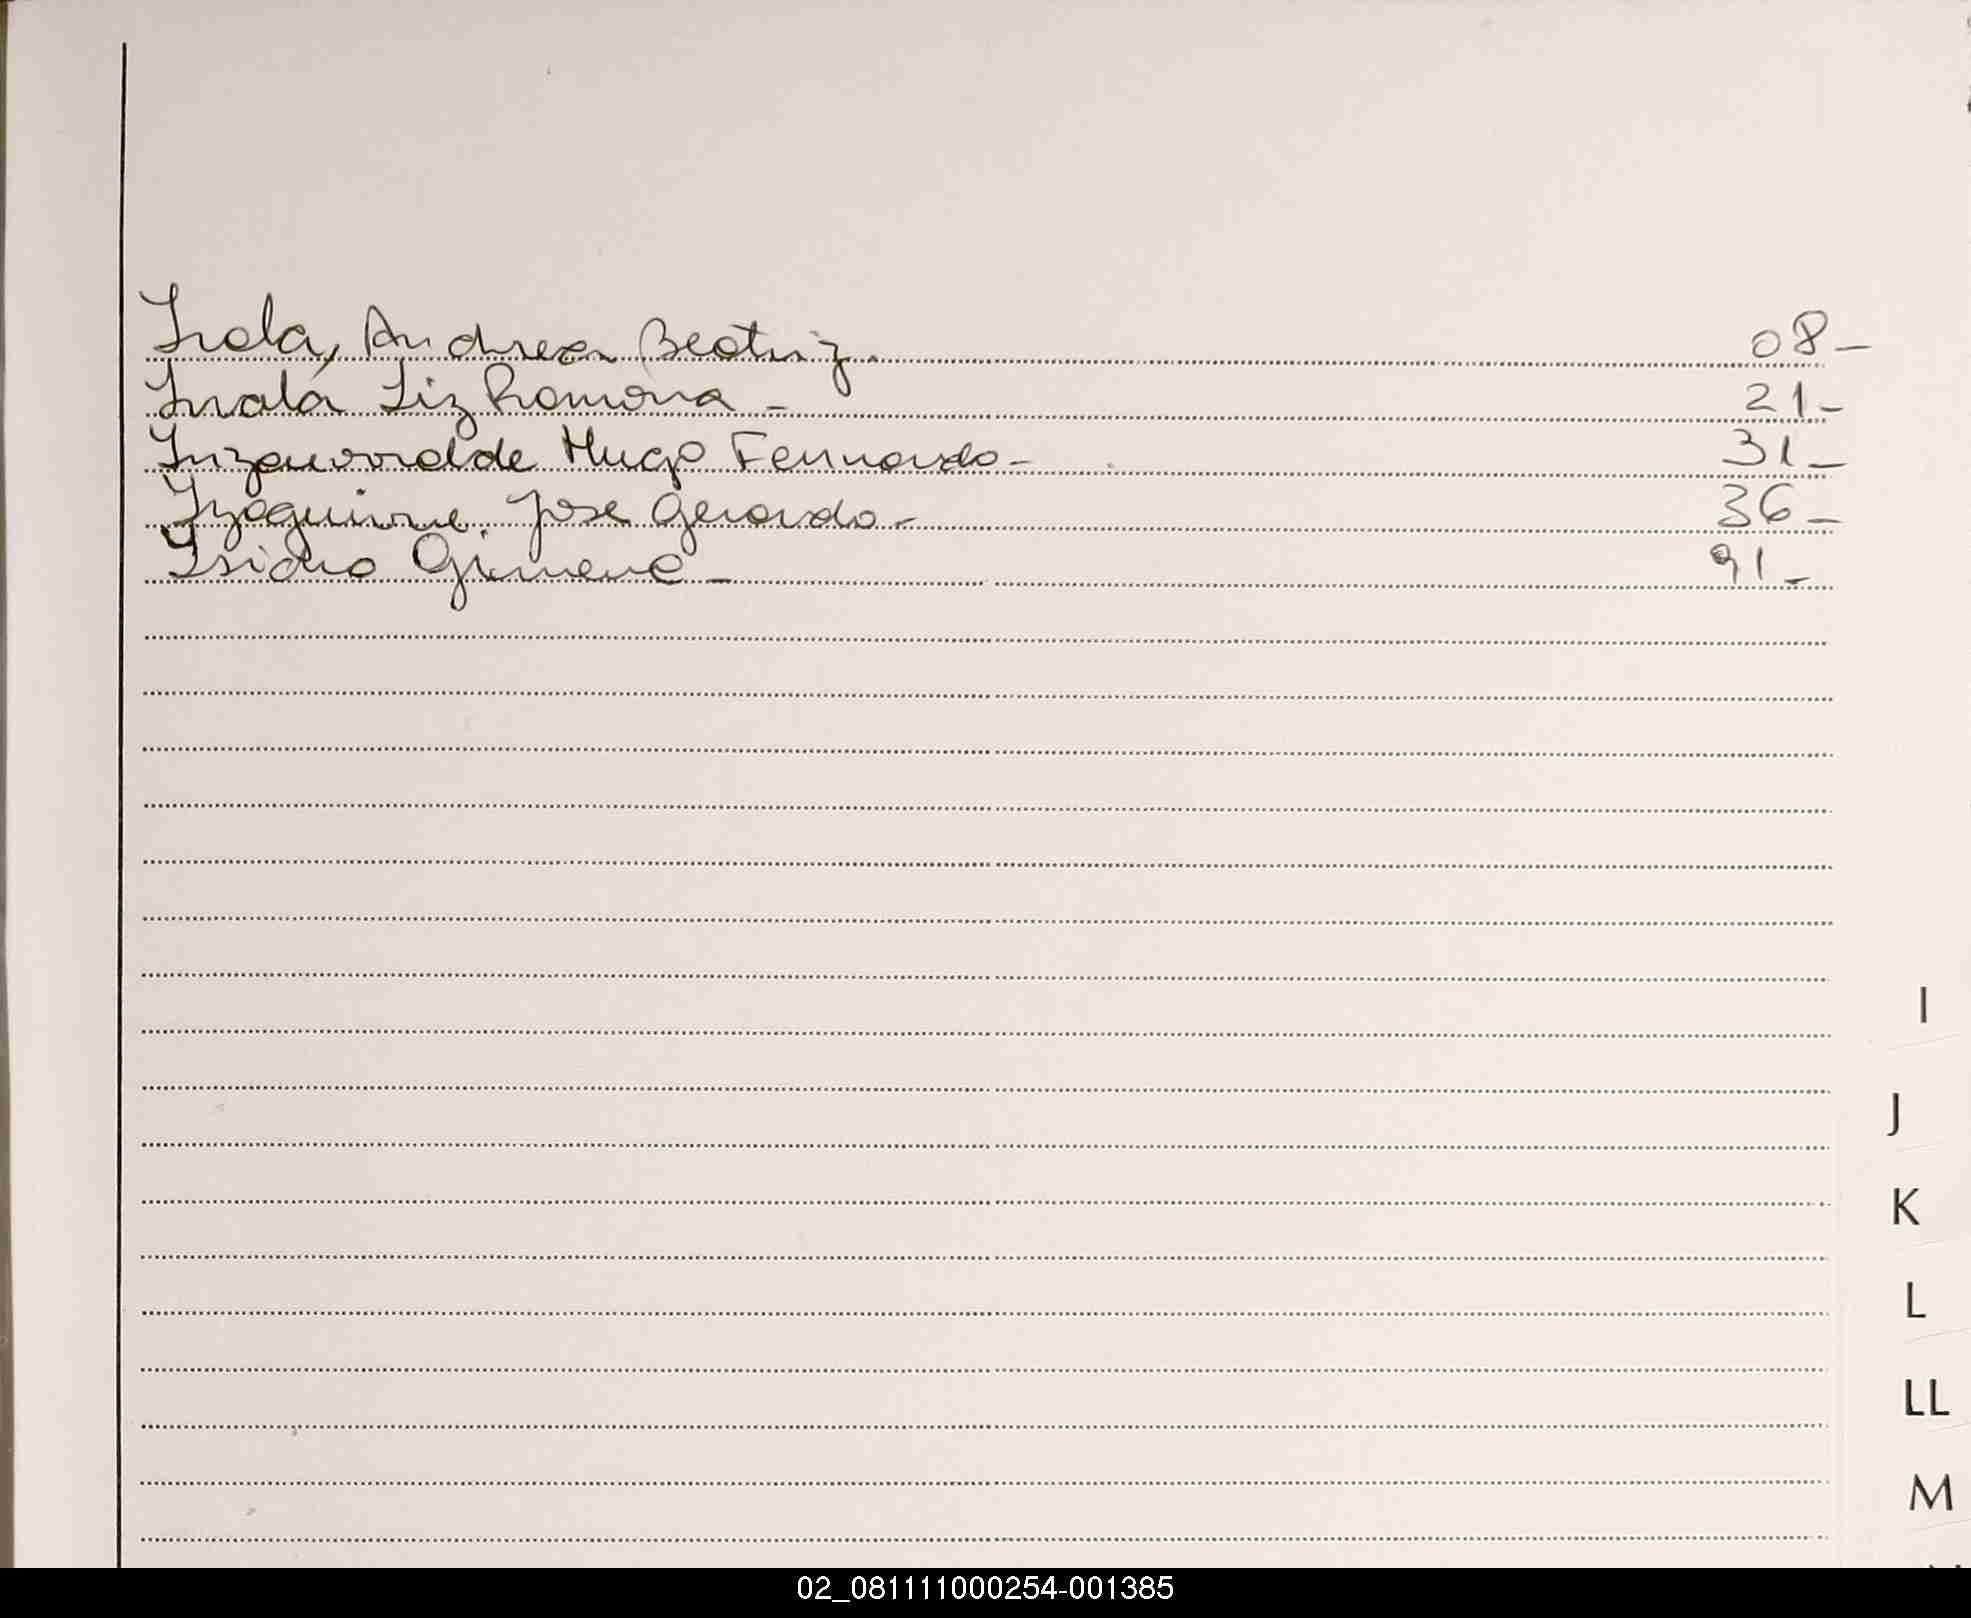 Irala, Andrea Beatriz. 08-
Irala Liz Ramona - 21-
Irizarralde Hugo Fernando - 31-
Izaguirre Jose Gerardo - 36-
Isidro Gimene - 91-
I
J
K
L
LL
M
02_081111000254-001385